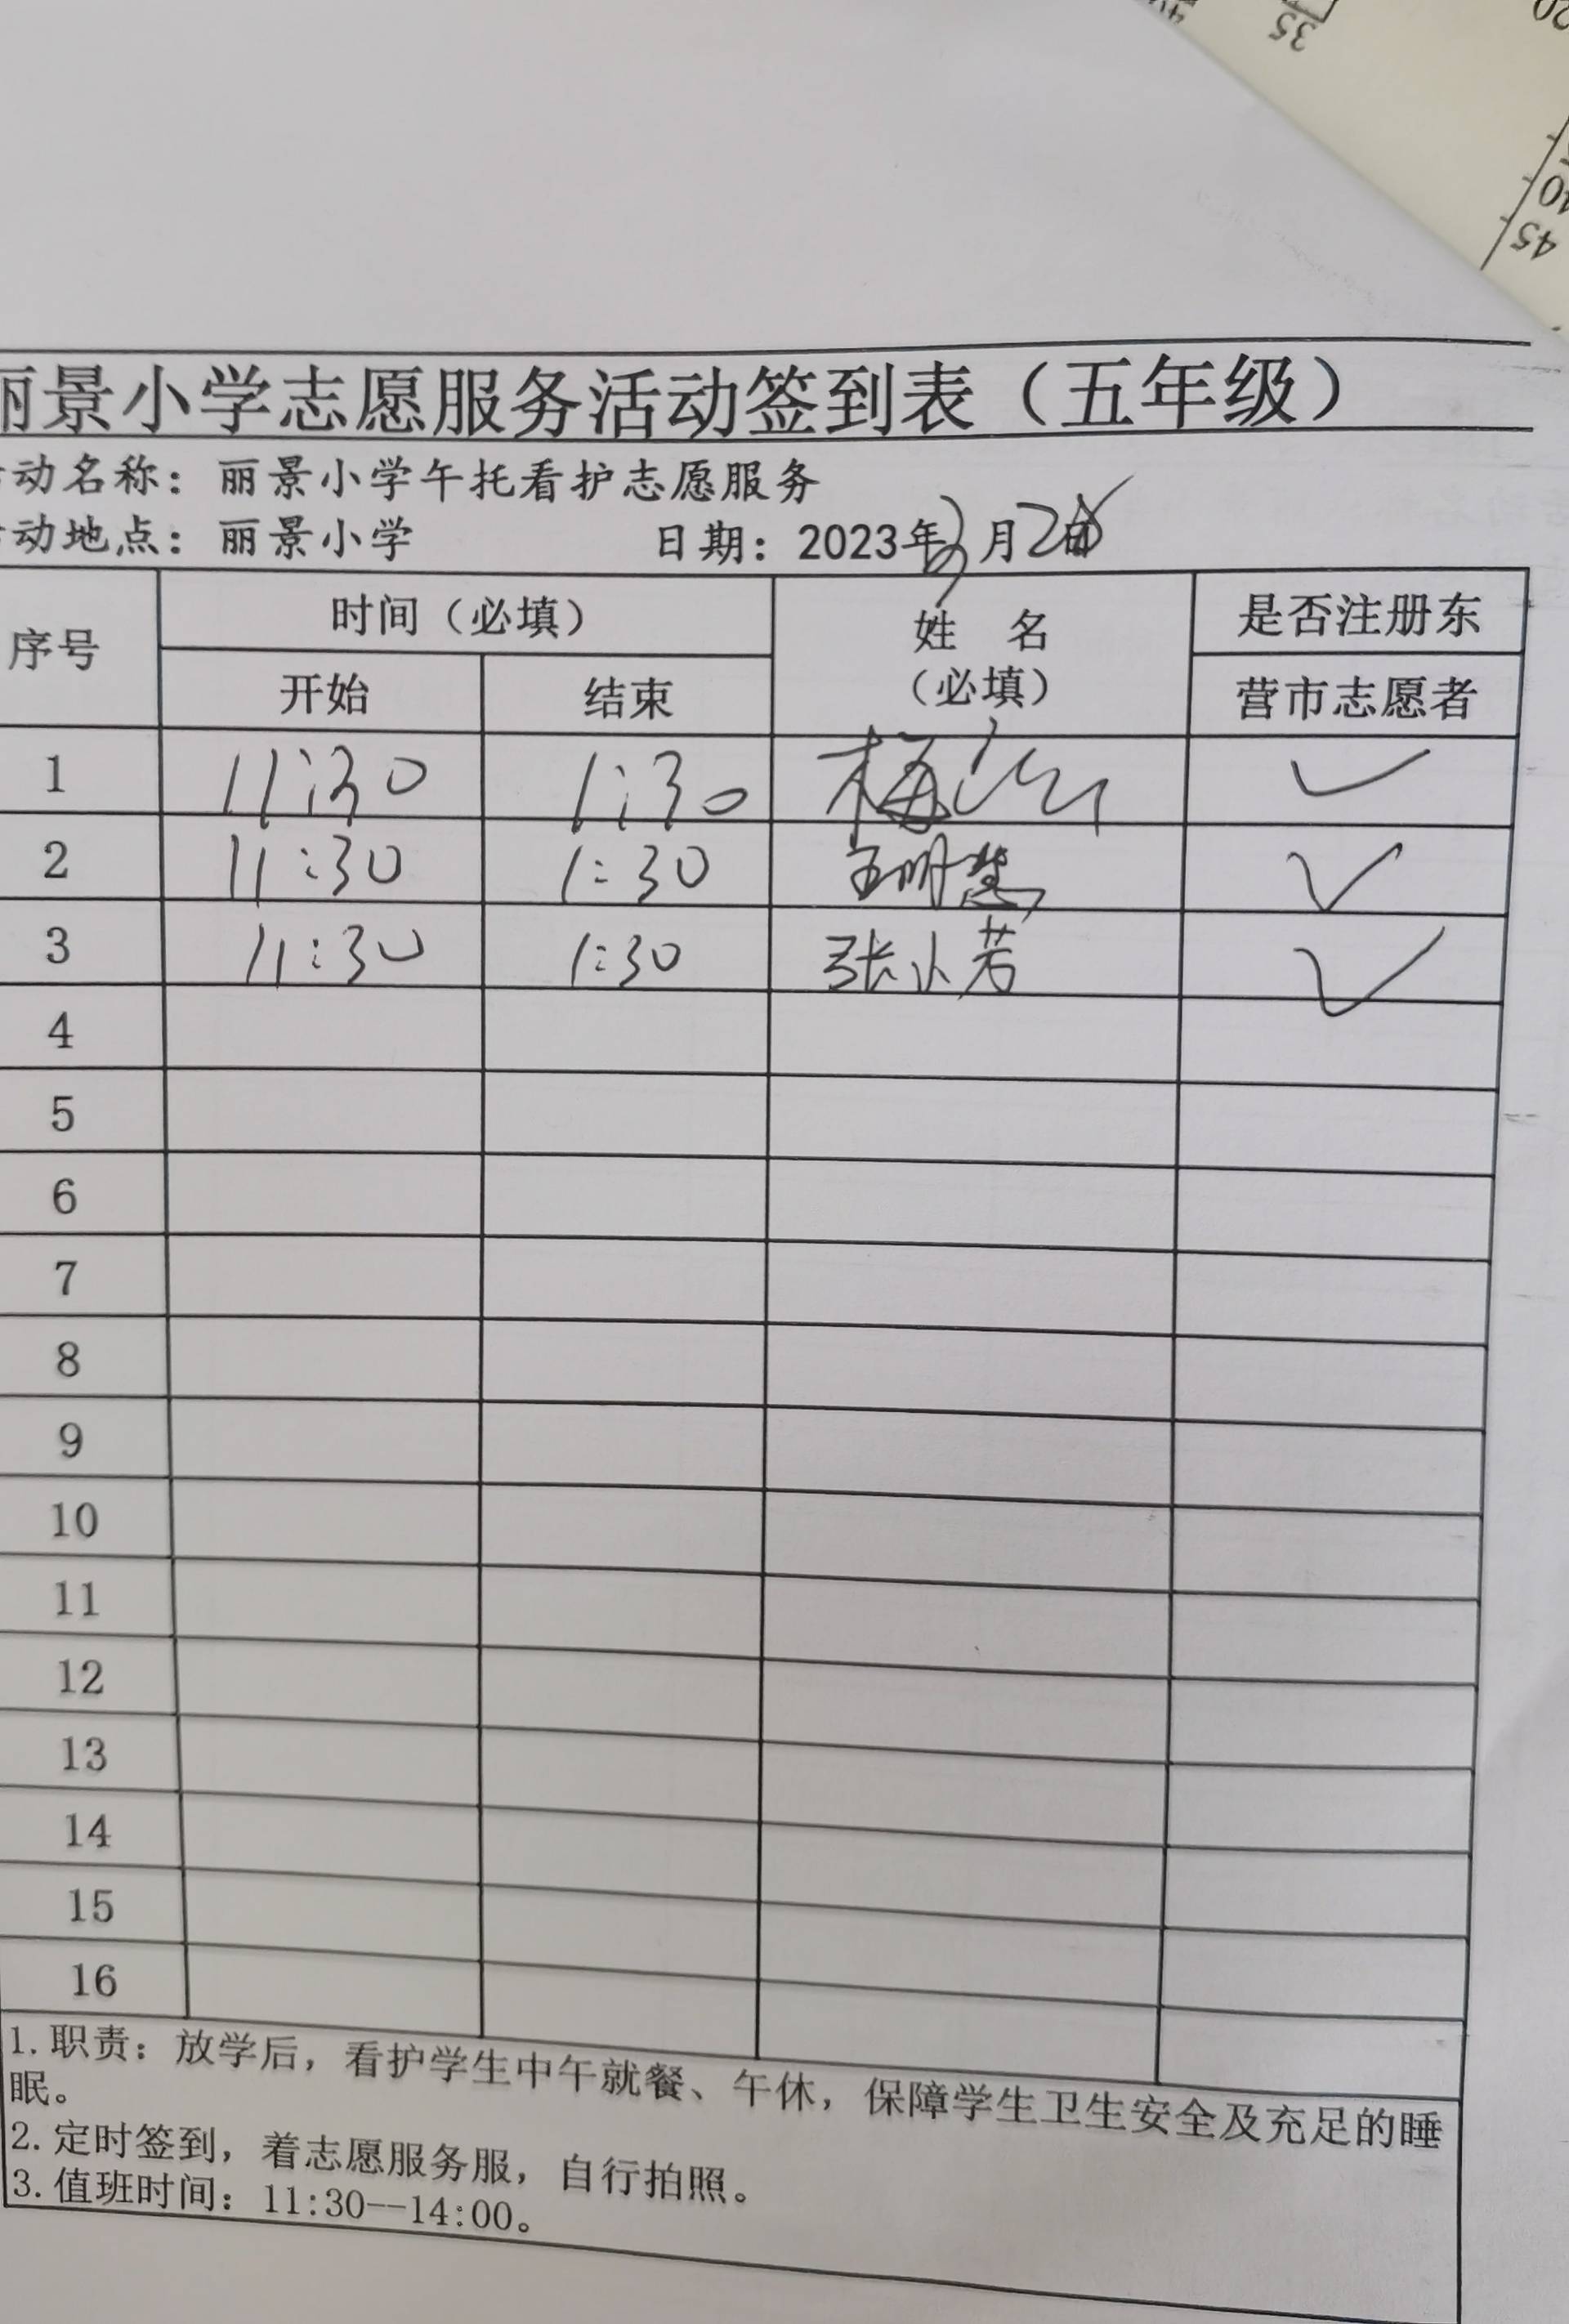 35
20
40
45
丽景小学志愿服务活动签到表（五年级）
活动名称：丽景小学午托看护志愿服务
活动地点：丽景小学 日期：2023年3月28日
序号 时间（必填） 姓 名（必填） 是否注册东营市志愿者
开始 结束
1 11:30 1:30 梅 ✓
2 11:30 1:30 王明慧 ✓
3 11:30 1:30 张小芳 ✓
4
5
6
7
8
9
10
11
12
13
14
15
16
1.职责：放学后，看护学生中午就餐、午休，保障学生卫生安全及充足的睡
眠。
2.定时签到，着志愿服务服，自行拍照。
3.值班时间：11:30--14:00。